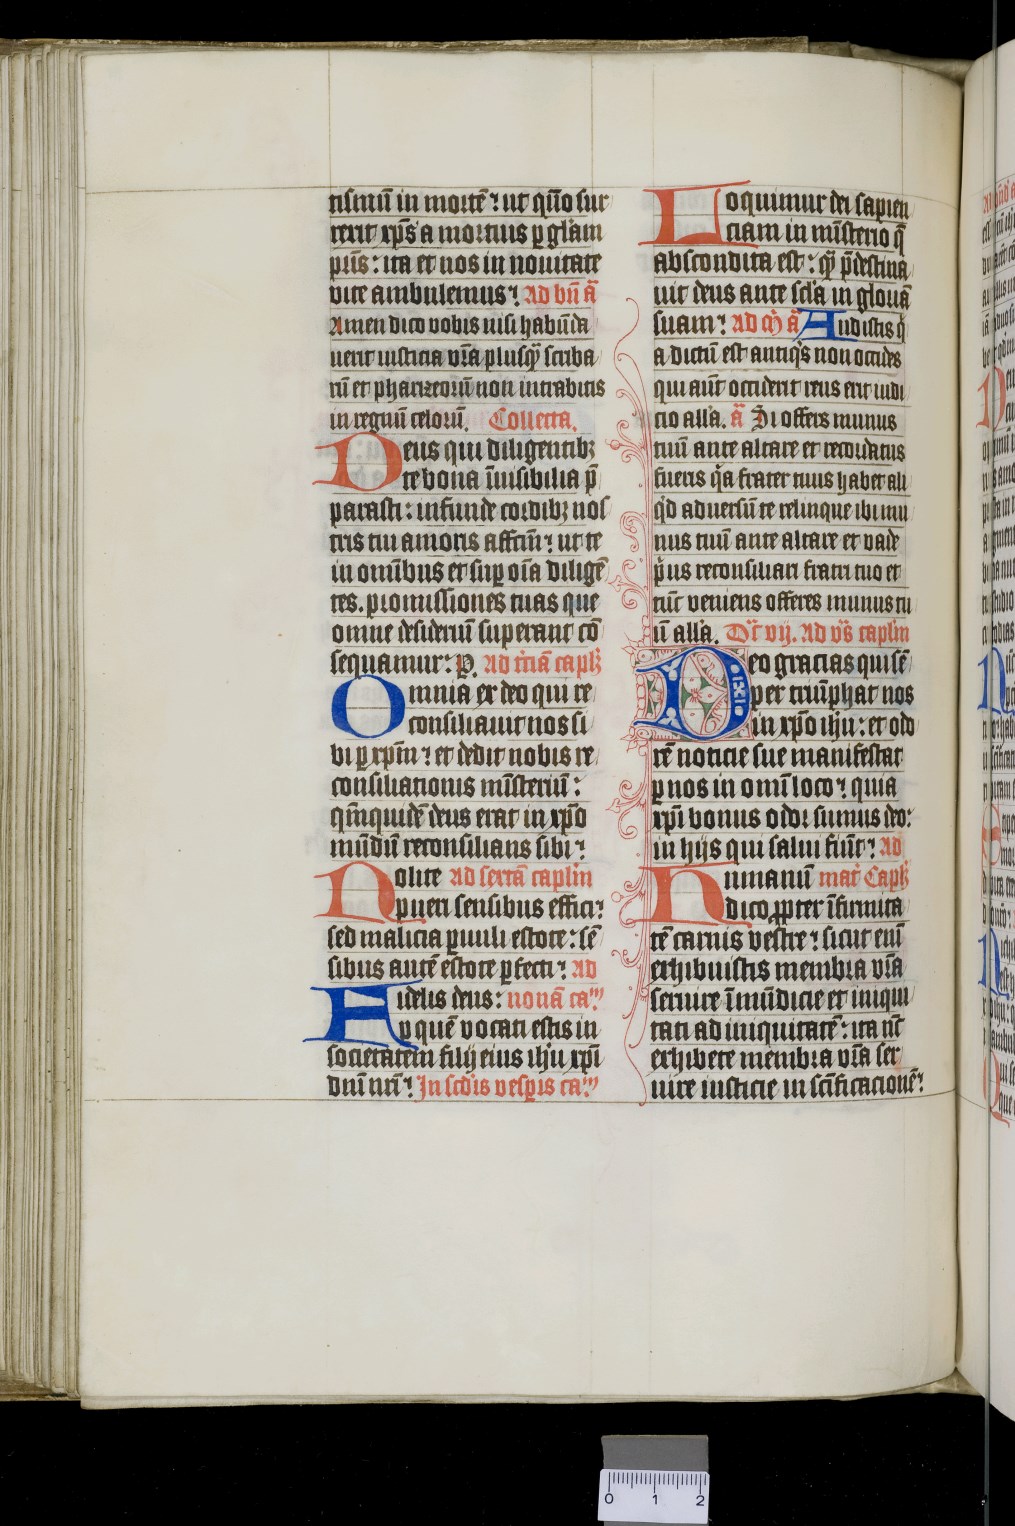 tismū in mortē ut quō sur
rexit xp̄s a mortuis ꝑ glām
pr̄is: ita et nos in nouitate
vite ambulemus Ad bn̄ ā
Amen dico vobis nisi habūda
uerit iusticia vr̄a plusq̄ scriba
rū et phariꝫeorū non intrabitis
in regnū celorū. Collecta.
Deus qui diligentibꝫ
te bona īuisibilia p̄
parasti: infunde cordibꝫ nos
tris tui amoris affctū ut te
in omībus et suꝑ oīa diligē
tes. promissiones tuas que
omne desideriū superant cō
sequamur: ꝑ. Ad tr̄ciā caplꝫ
Omnia ex deo qui re
consiliauit nos si
bi ꝑ xpm̄ et dedit nobis re
consiliationis mīsteriū:
qm̄quidē deus erat in xp̄o
mūdū reconsilians sibi
Nolite Ad sextā caplm̄
pueri sensibus effici
sed malicia ꝑuuli estote: sē
sibus autē estote ꝑfecti Ad
Fidelis deus: nonā ca
ꝑ quē vocati estis in
societatem filij eius ihu xpī
dnī nr̄i In scdis vespis ca
Loquimur dei sapien
ciam in mīsterio q̄
abscondita est: q̄ p̄destina
uit deus ante scl̄a in gloriā
suam Ad m ā Audistis q
a dictū est antiqs non occides
qui aūt occiderit reus erit iudi
cio all̄a. ā Si offers munus
tuū ante altare et recordatus
fueris qa frater tuus habet ali
qd aduersū te relinque ibi mu
nus tuū ante altare et vade
prius reconsiliari fratri tuo et
tūc veniens offeres munus tu
ū all̄a. Dc vij. Ad vs̄ caplm̄
Deo gracias qui sē
per triūphat nos
in xp̄o ihu: et odo
rē noticie sue manifestat
ꝑ nos in omī loco quia
xpī bonus odor sumus deo:
in hijs qui salui fiūt Ad
Humanū mat Caplꝫ
dico ꝓpter īfirmita
tē carnis vestre sicut enī
exhibuistis membra vr̄a
seruire īmūdicie et iniqui
tati ad iniquitatē: ita nūc
exhibete membra vr̄a ser
uire iusticie in scīficacionē